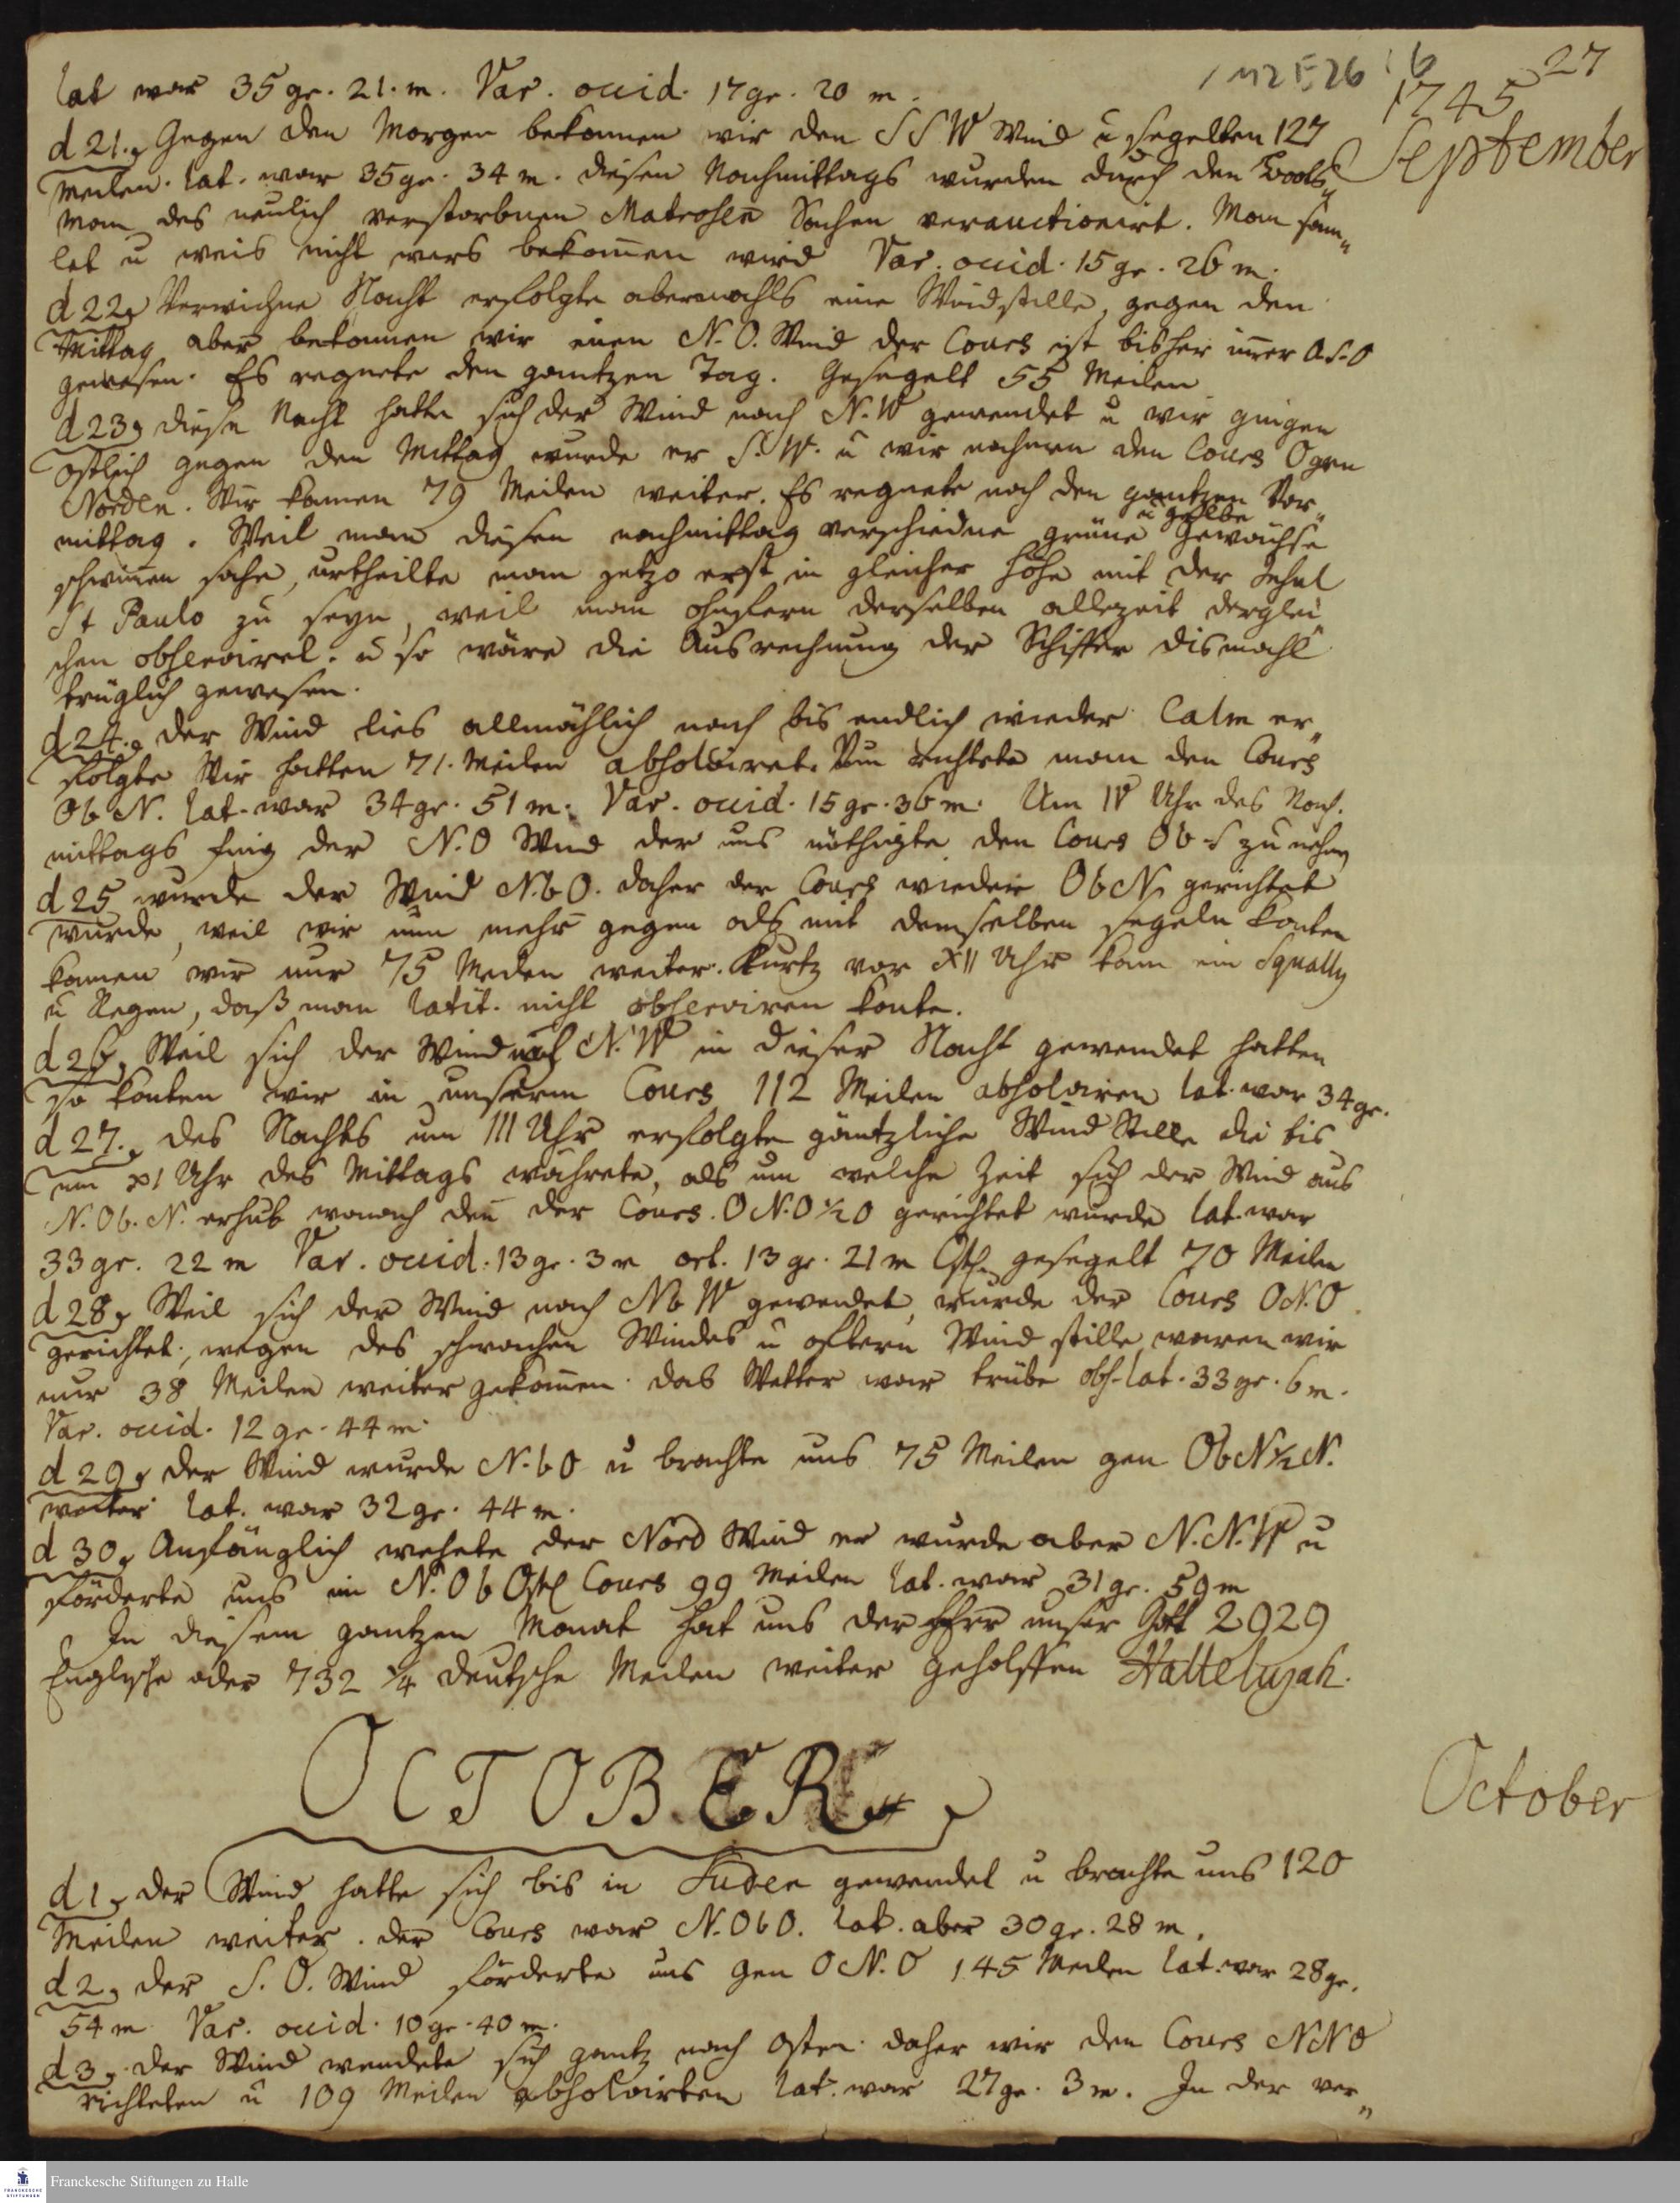 1 M2 E 26 : 6
27
1745
September
lat war 35 gr. 21. m. Var. occid. 17 gr. 20 m.
d 21. Gegen den Morgen bekommen wir den S S W Wind u segelten 127
Meilen. lat. war 35 gr. 34 m. diesen Nachmittags wurden durch den Boots„
man des neulich verstorbnen Matrosen Sachen verauctionirt. Man sam„
let u weis nicht wers bekomen wird Var. occid. 15 gr. 26 m.
d 22, Verwichne Nacht erfolgte abermahls eine Windstille, gegen den
Mittag aber bekommen wir einen N. O. Wind der Cours ist bisher imer O S. O
gewesen. Es regnete den gantzen Tag. Gesegelt 55 Meilen
d 23, diese Nacht hatte sich der Wind nach N. W gewendet u wir gingen
östlich gegen den Mittag wurde er S. W. u wir nahmen den Cours O gen
Norden. Wir kamen 79 Meilen weiter. Es regnete noch den gantzen Vor„
mittag. Weil man diesen nachmittag verschiedne grüne u gelbe Gewächse
schwimen sahe, urtheilte man jetzo erst in gleicher Höhe mit der Insul
St Paulo zu seyn, weil man ohnfern derselben allezeit derglei„
chen observiret. u so wäre die Ausrechnung der Schiffer dismahl
trüglich gewesen.
d 24. der Wind lies allmählich nach bis endlich wieder Calm er„
folgte Wir hatten 71. Meilen absolviret. Nun richtete man den Cours
O b N. lat. war 34 gr. 51 m. Var. occid. 15 gr. 36 m. Um IV Uhr des Nach.
mittags fing der N. O Wind der uns nöthigte den Cours O b S zu nehmen
d 25 wurde der Wind N. b O. daher der Cours wieder O b N. gerichtet
wurde, weil wir nun mehr gegen als mit demselben segeln konten
kamen wir nur 75 Meilen weiter. Kurtz vor XII Uhr kam ein Squally
u Regen, daß man latit. nicht observiren konte.
d 26, Weil sich der Wind nach N. W in dieser Nacht gewendet hatten
so konten wir in unserm Cours 112 Meilen absolviren lat. war 34 gr.
d 27., des Nachts um III Uhr erfolgte gäntzliche Wind Stille die bis
um XI Uhr des Mittags währete, als um welche Zeit sich der Wind aus
N. O b. N. erhub wonach den der Cours. O N. O ½ O gerichtet wurde lat. war
33 gr. 22 m Var. occid. 13 gr. 3 m ort. 13 gr. 21 m gesegelt 70 Meilen
d 28, Weil sich der Wind nach N b W gewendet, wurde der Cours O N. O
gerichtet., wegen des schwachen Windes u oftern Wind stille waren wir
nur 38 Meilen weiter gekomen. das Wetter war trübe obs. lat. 33 gr. 6 m.
Var. occid. 12 gr. 44 m.
d 29, der Wind wurde N. b O u brachte uns 75 Meilen gen O b N ½ N.
weiter lat. war 32 gr. 44 m.
d 30, Anfänglich wehete der Nord Wind er wurde aber N. N. W u
förderte uns im N. O b Ostl Cours 99 Meilen lat. war 31 gr. 59 m
In diesem gantzen Monat hat uns der HErr unser Gott 2929
Englische oder 732 ¼ deutsche Meilen weiter geholffen Hallelujah.
OCTOBER
October
d 1, der Wind hatte sich bis in Suden gewendet u brachte uns 120
Meilen weiter. der Cours war N. O b O. lat. aber 30 gr. 28 m.
d 2, der S. O. Wind förderte uns gen O N. O 145 Meilen lat. war 28 gr.
54 m Var. occid. 10 gr. 40 m.
d 3, der Wind wendete sich gantz nach Osten. daher wir den Cours N N O
richteten u 109 Meilen absolvirten lat. war 27 gr. 3 m. In der ver„
Franckesche Stiftungen zu Halle
FRANCKESCHE STIFTUNGEN